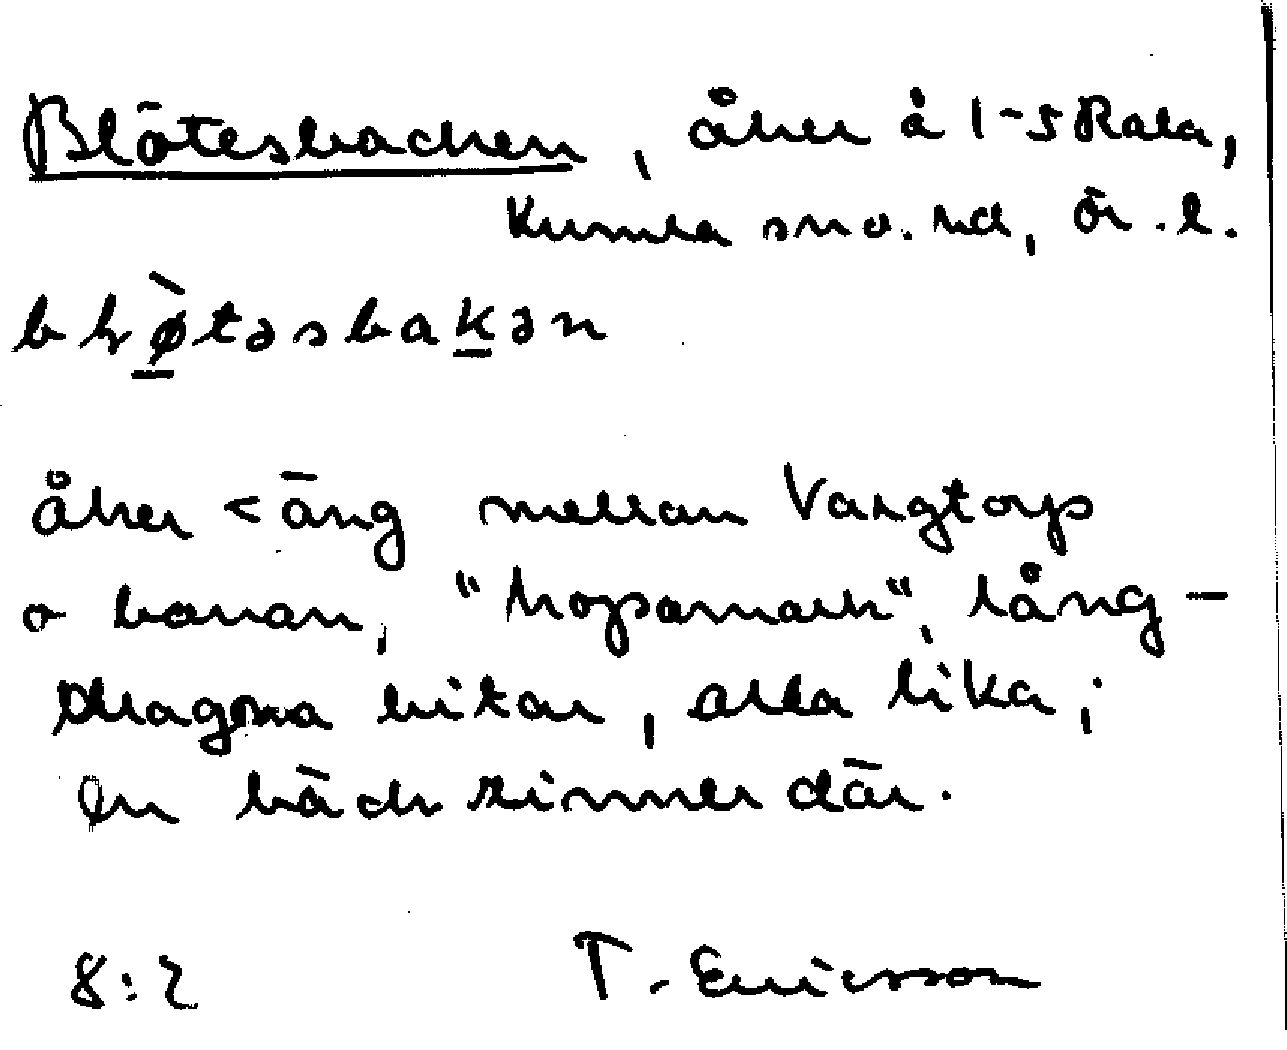 Blötesbacken, åker å 1-5 Rala,
Kumla sn o. hd, Ör. l.
bløtəsbakən
åker < äng mellan Vargtorp
o banan, "kopamark", lång-
dragna bitar, alla lika;
en bäck rinner där.
8:2 T. Ericsson